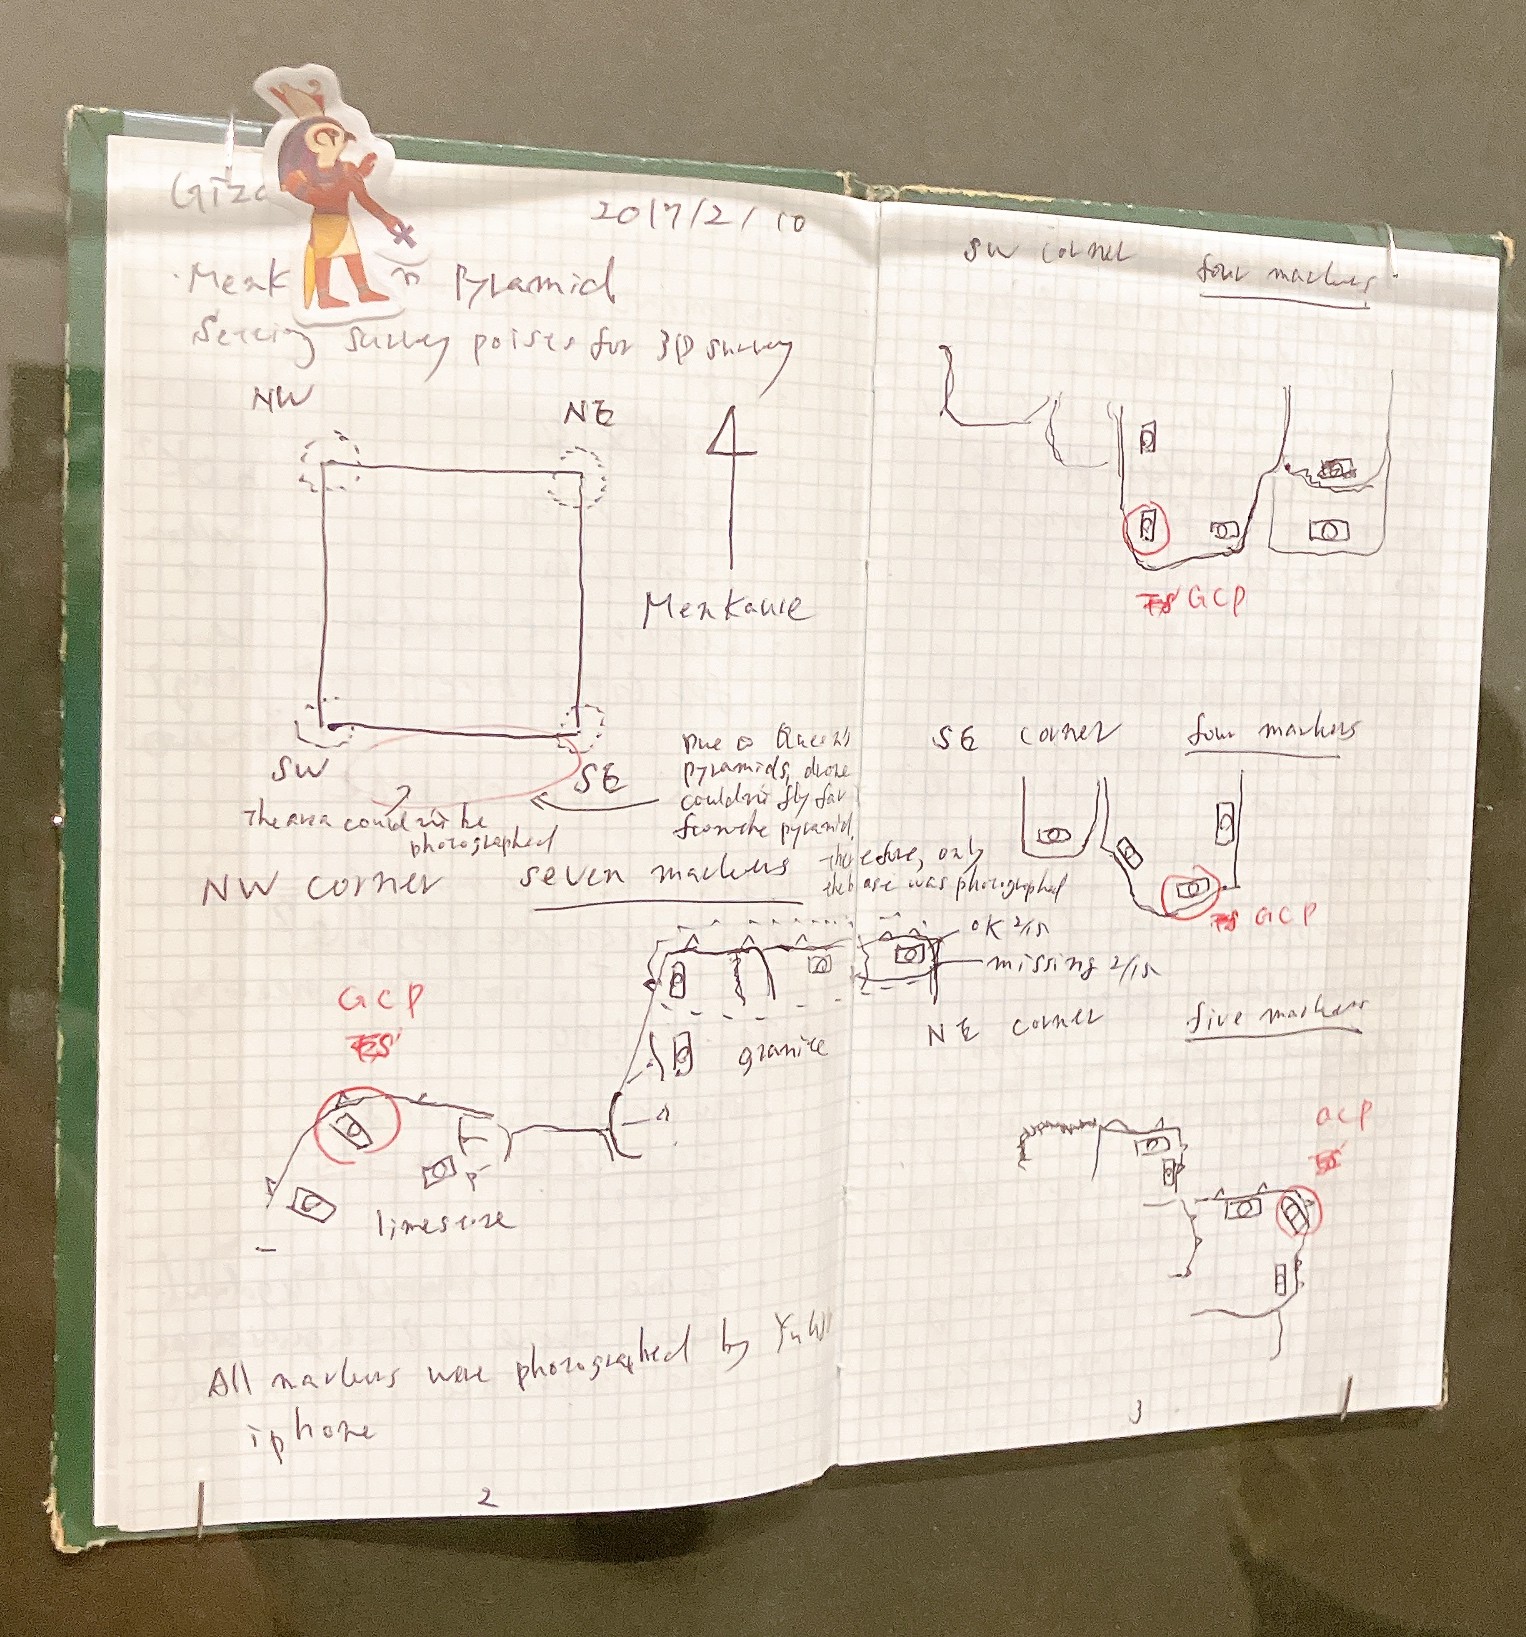 Giza
2017/2/10
·Menk n Pyramid
Setting survey points for 3D survey
NW
NE
Menkaure
SW
SE
The area couldn't be
photographed
Due to Queen's
pyramids, drone
couldn't fly far
from the pyramid,
therefore, only
the base was photographed
NW corner seven markers
OK 2/15
missing 2/15
GCP
granite
limestone
All markers were photographed by
iphone
2
SW corner four markers
GCP
SE corner four markers
GCP
NE corner five markers
GCP
3